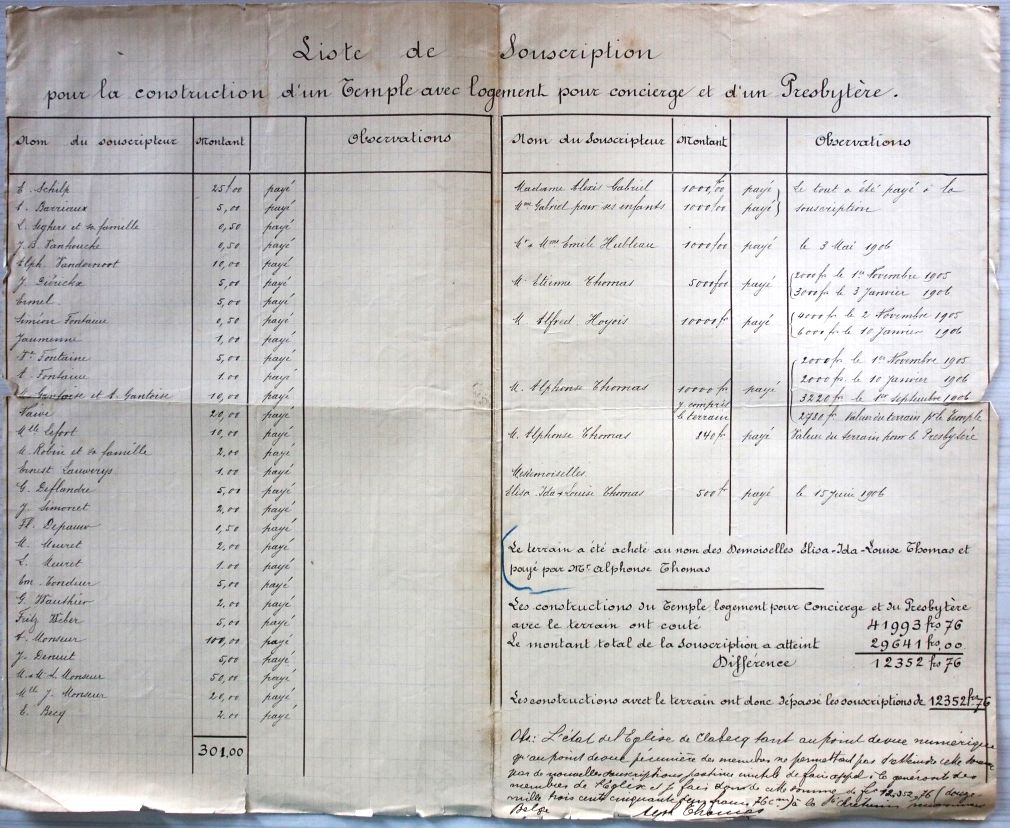 Liste de Souscription
pour la construction d'un Temple avec logement pour concierge et d'un Presbytère.
Nom du souscripteur Montant Observations
E. Schilp 25f00 payé
A. Barriaux 5,00 payé
L. Seghers et sa famille 0,50 payé
J. B. Vanhoucke 0,50 payé
Alph. Vandernoot 10,00 payé
J. Diérickx 5,00 payé
Ermel 5,00 payé
Siméon Fontaine 0,50 payé
Jaumenne 1,00 payé
Fontaine 5,00 payé
A. Fontaine 1.00 payé
Gantoise et A. Gantoise 10,00 payé
20,00 payé
Mlle Lefort 10,00 payé
M. Robin et sa famille 2,00 payé
Ernest Lauwerys 1.00 payé
G. Deflandre 5,00 payé
J. Simonet 2,00 payé
Fl. Depauw 0,50 payé
M. Meuret 2,00 payé
L. Meuret 1.00 payé
Em. Tondeur 5,00 payé
G. Wauthier 2,00 payé
Fritz Weber 5,00 payé
A. Monseur 100,00 payé
J. Denuit 5,00 payé
M. & M. L. Monseur 50,00 payé
Mlle J. Monseur 20,00 payé
E. Becq 2.00 payé
301,00
Nom du Souscripteur Montant Observations
Madame Alexis Gabriel 1000f00 payé Le tout a été payé à la
Mme Gabriel pour ses enfants 1000f00 payé souscription
Mr & Mme Emile Hubleau 1000f00 payé le 3 Mai 1906
M. Etienne Thomas 5000f00 payé 2000 fr. le 1er Novembre 1905
3000 fr. le 3 Janvier 1906
M. Alfred Hoyois 10000 fr payé 4000 fr. le 2 Novembre 1905
6000 fr. le 10 Janvier 1906
2000 fr. le 1er Novembre 1905
2000 fr. le 10 Janvier 1906
M. Alphonse Thomas 10000 fr payé 3220 fr. le 1er Septembre 1906
y compris le terrain 2780 fr. Valeur du terrain pr le Temple
M. Alphonse Thomas 840 fr payé Valeur du terrain pour le Presbytère
Mesdemoiselles
Elisa, Ida & Louise Thomas 500 f payé le 15 Juin 1906
Le terrain a été acheté au nom des Demoiselles Elisa-Ida-Louise Thomas et
payé par Mr. Alphonse Thomas
Les constructions du Temple logement pour Concierge et du Presbytère
avec le terrain ont couté 41993 frs 76
Le montant total de la Souscription a atteint 29641 frs,00
Différence 12352 frs 76
Les constructions avec le terrain ont donc dépassé les souscriptions de 12352 fr 76
Obs: L'état de l'Eglise de Clabecq tant au point de vue numérique
qu'au point de vue pécunière des membres ne permettant pas d'atteindre cette somme
par de nouvelles souscriptions inutile de faire appel à la générosité des
membres de l'Eglise et je fais don de cette somme de frs 12.352,76 (douze
mille trois cent cinquante deux francs 76 cms) à la
Belge Alph Thomas